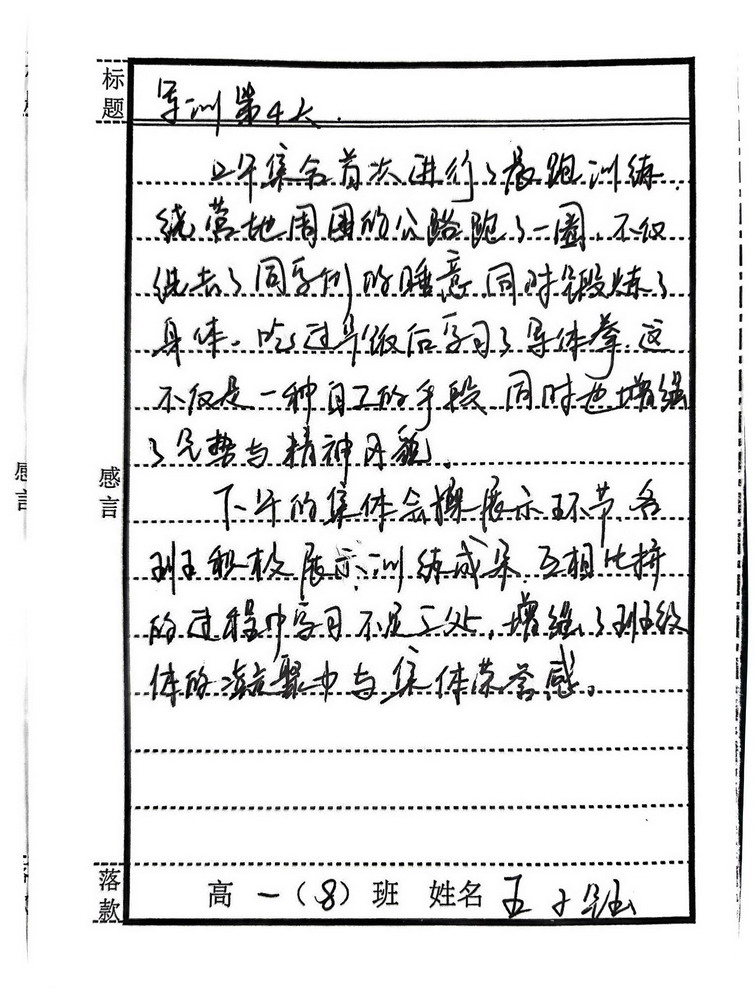 标题
军训第4天.
上午集合首次进行了晨跑训练,
绕营地周围的公路跑了一圈,不仅
洗去了同学们的睡意,同时锻炼了
身体。吃过早饭后学习了军体拳,这
不仅是一种自卫的手段,同时也增强
了气势与精神面貌.
下午的集体会操展示环节,各
班积极展示训练成果,互相比拼
的过程中学习不足之处,增强了班级
体的凝聚力与集体荣誉感。
感言
感言
落款
高一(8)班 姓名 王子